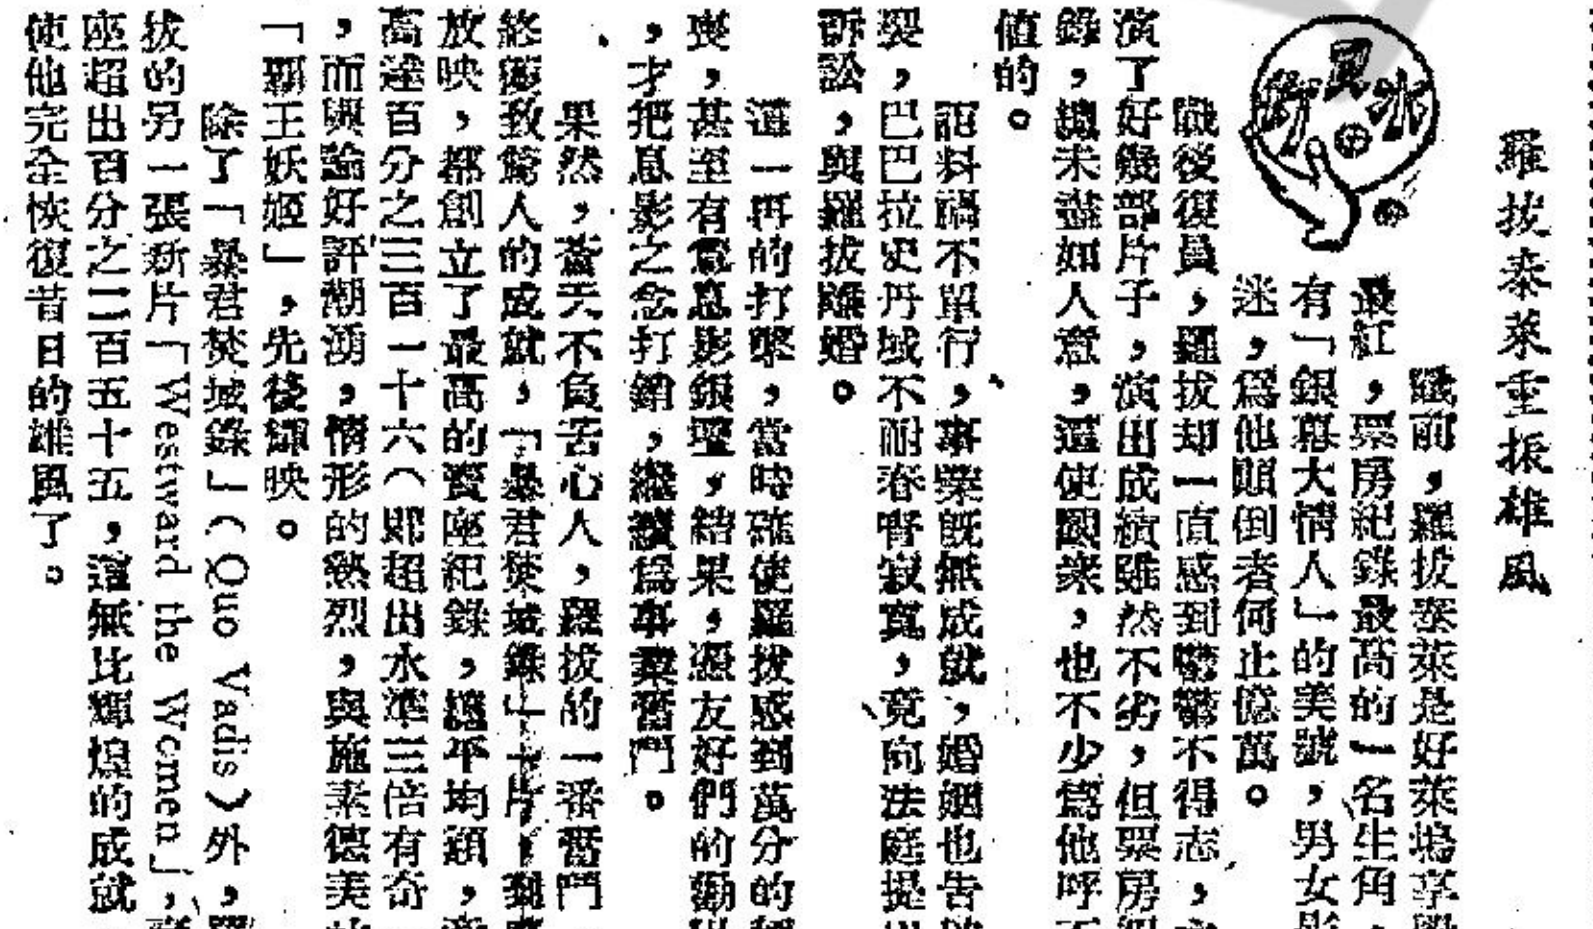 羅拔泰萊重振雄風
影民水銀
戰前，羅拔泰萊是好萊塢享譽
最紅，票房紀錄最高的一名生角，
有「銀幕大情人」的美號，男女影
迷，爲他顚倒者何止億萬。
戰後復員，羅拔却一直感到鬱鬱不得志，
演了好幾部片子，演出成績雖然不劣，但票房紀
錄，總未盡如人意，這使觀衆，也不少爲他呼不
值的。
詎料禍不單行，事業旣無成就，婚姻也告破
裂，巴巴拉史丹域不耐春宵寂寞，竟向法庭提出
訴訟，與羅拔離婚。
這一再的打擊，當時確使羅拔感到萬分的
喪，甚至有意息影銀壇，結果，憑友好們的勸
，才把息影之念打銷，繼續爲事業奮鬥。
果然，蒼天不負苦心人，羅拔的一番奮鬥
終獲致驚人的成就，「暴君焚城錄」一片，到處
放映，都創立了最高的賣座紀錄，總平均額，
高達百分之三百一十六（卽超出水準三倍有奇
，而輿論好評潮湧，情形的熱烈，與施素德美的
「霸王妖姬」，先後輝映。
除了「暴君焚城錄」（Quo Vadis）外，羅
拔的另一張新片「Westward the Women」，
座超出百分之二百五十五，這無比輝煌的成就
使他完全恢復昔日的雄風了。